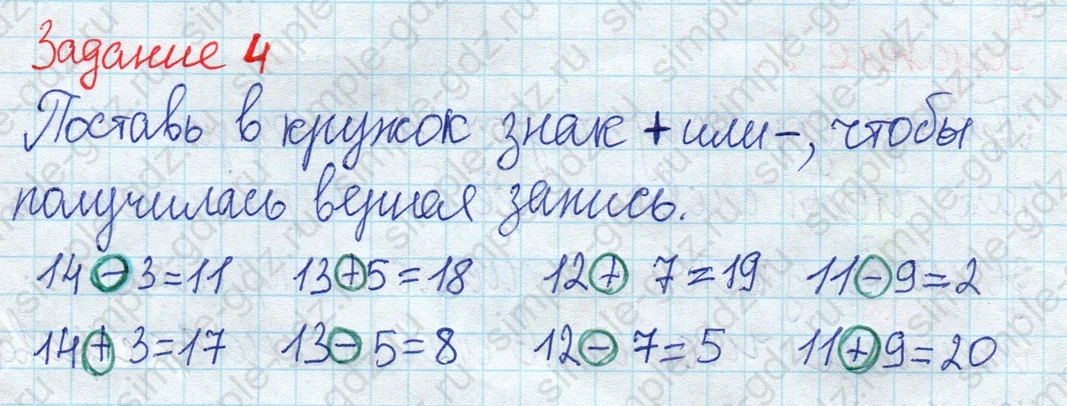 Задание 4
Поставь в кружок знак + или -, чтобы
получилась верная запись.
14 - 3 = 11 13 + 5 = 18 12 + 7 = 19 11 - 9 = 2
14 + 3 = 17 13 - 5 = 8 12 - 7 = 5 11 + 9 = 20
simple-gdz.ru